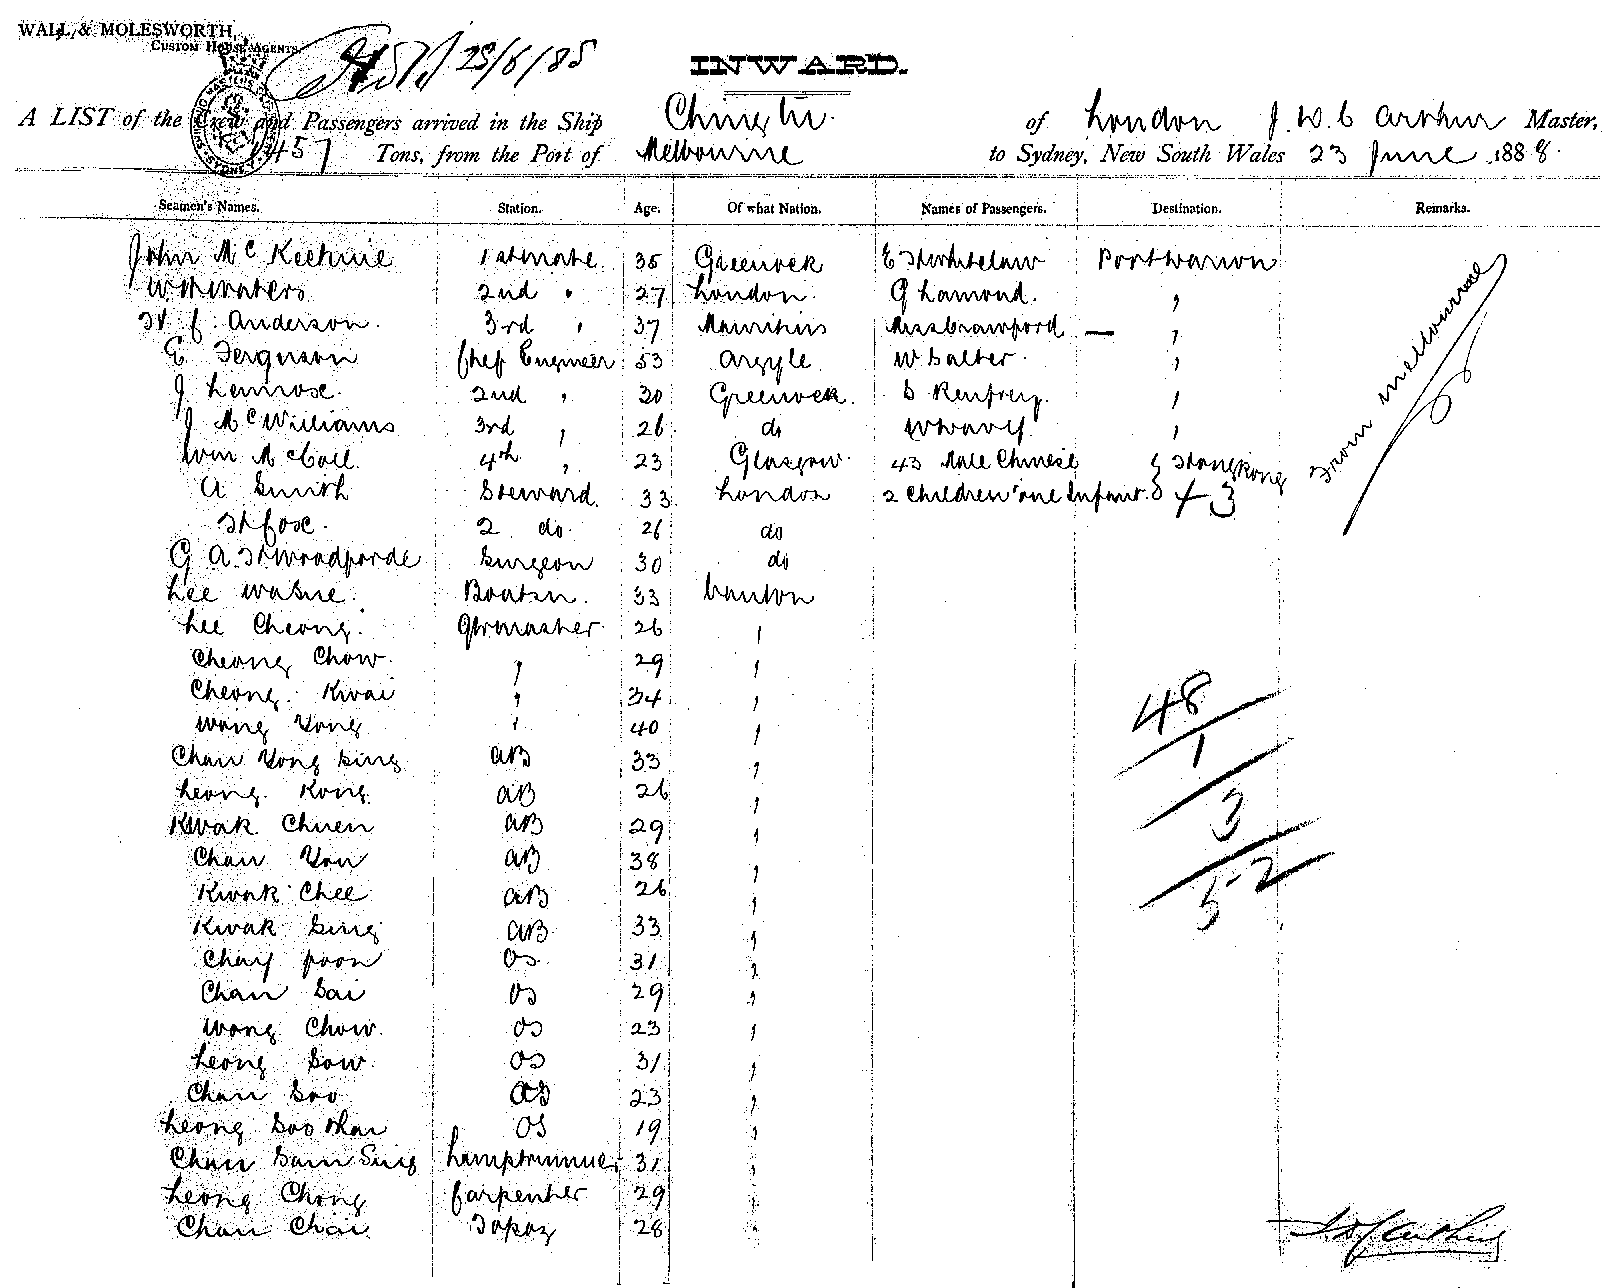 WALL & MOLESWORTH,
CUSTOM HOUSE AGENTS.
25/6/88
INWARD.
A LIST of the Crew and Passengers arrived in the Ship Chingtu of London J. W. C Arthur Master,
1457 Tons, from the Port of Melbourne to Sydney, New South Wales 23 June 1888.
Seamen's Names. Station. Age. Of what Nation. Names of Passengers. Destination. Remarks.
John McKechnie 1st mate 35 Greenock E H Whitelaw Port Darwin
W H Waters 2nd " 27 London G Lamond. "
H C Anderson. 3rd " 37 Mauritius Miss Crawford — "
E Ferguson Chef Engineer 53 Argyle W Salter. "
J Lenrose. 2nd " 30 Greenock. S Renfrey. "
J McWilliams 3rd " 26 do "
Wm McColl. 4th " 23 Glasgow. 43 Male Chinese } Hong Kong
A Smith Steward. 33 London 2 Children one Infant. } + 3
H Cox. 2 do. 26 do
G A H Woodforde Surgeon 30 do
Lee Boatsn. 33 Canton
Lee Cheong. Qrmaster 26 "
Cheong Chow. " 29 "
Cheong Kwai " 34 "
Wong Yong " 40 "
Chan Yong Sing AB 33 "
Leong Kong AB 26 "
Kwok Chuen AB 29 "
Chan You AB 38 "
Kwok Chee AB 26 "
Kwok Sing AB 33 "
poon OS 31 "
Chan Sai OS 29 "
Wong Chow. OS 23 "
Leong Sow OS 31 "
Chan Soo OS 23 "
Leong Soo OS 19 "
Chan Sam Sing Lamptrimmer 31 "
Leong Chong Carpenter 29 "
Chan Chai Topaz 28 "
From Melbourne
48
1
3
52
J W C Arthur